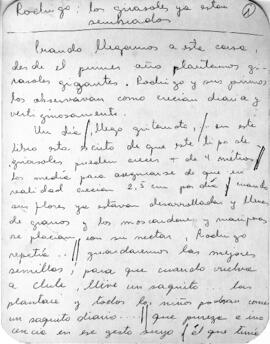 Rodrigo: los girasoles ya estan
sembrados
1
Cuando llegamos a esta casa,
desde el primer año plantamos gi-
rasoles gigantes. Rodrigo y sus primos
los observavan como crecian diaria y
vertiginosamente.
Un dia, llego gritando, en este
libro sta. escrito de que este tipo de
girasoles pueden crecer + de 4 metros
los media para asegurarse de que en
realidad crecian 2,5 cm por dia y cuando
sus flores ya estavan desarrolladas y llenas
de granos y los moscardones y mariposas
se placian con su nectar, Rodrigo
repetia.. guardaremos las mejores
semillas, para que cuando vuelva
a Chile, lleve un saquito las
plantare y todos los niños podran comer
un saquito diario... que pureza e ino
cencia en ese gesto suyo, el que tenia